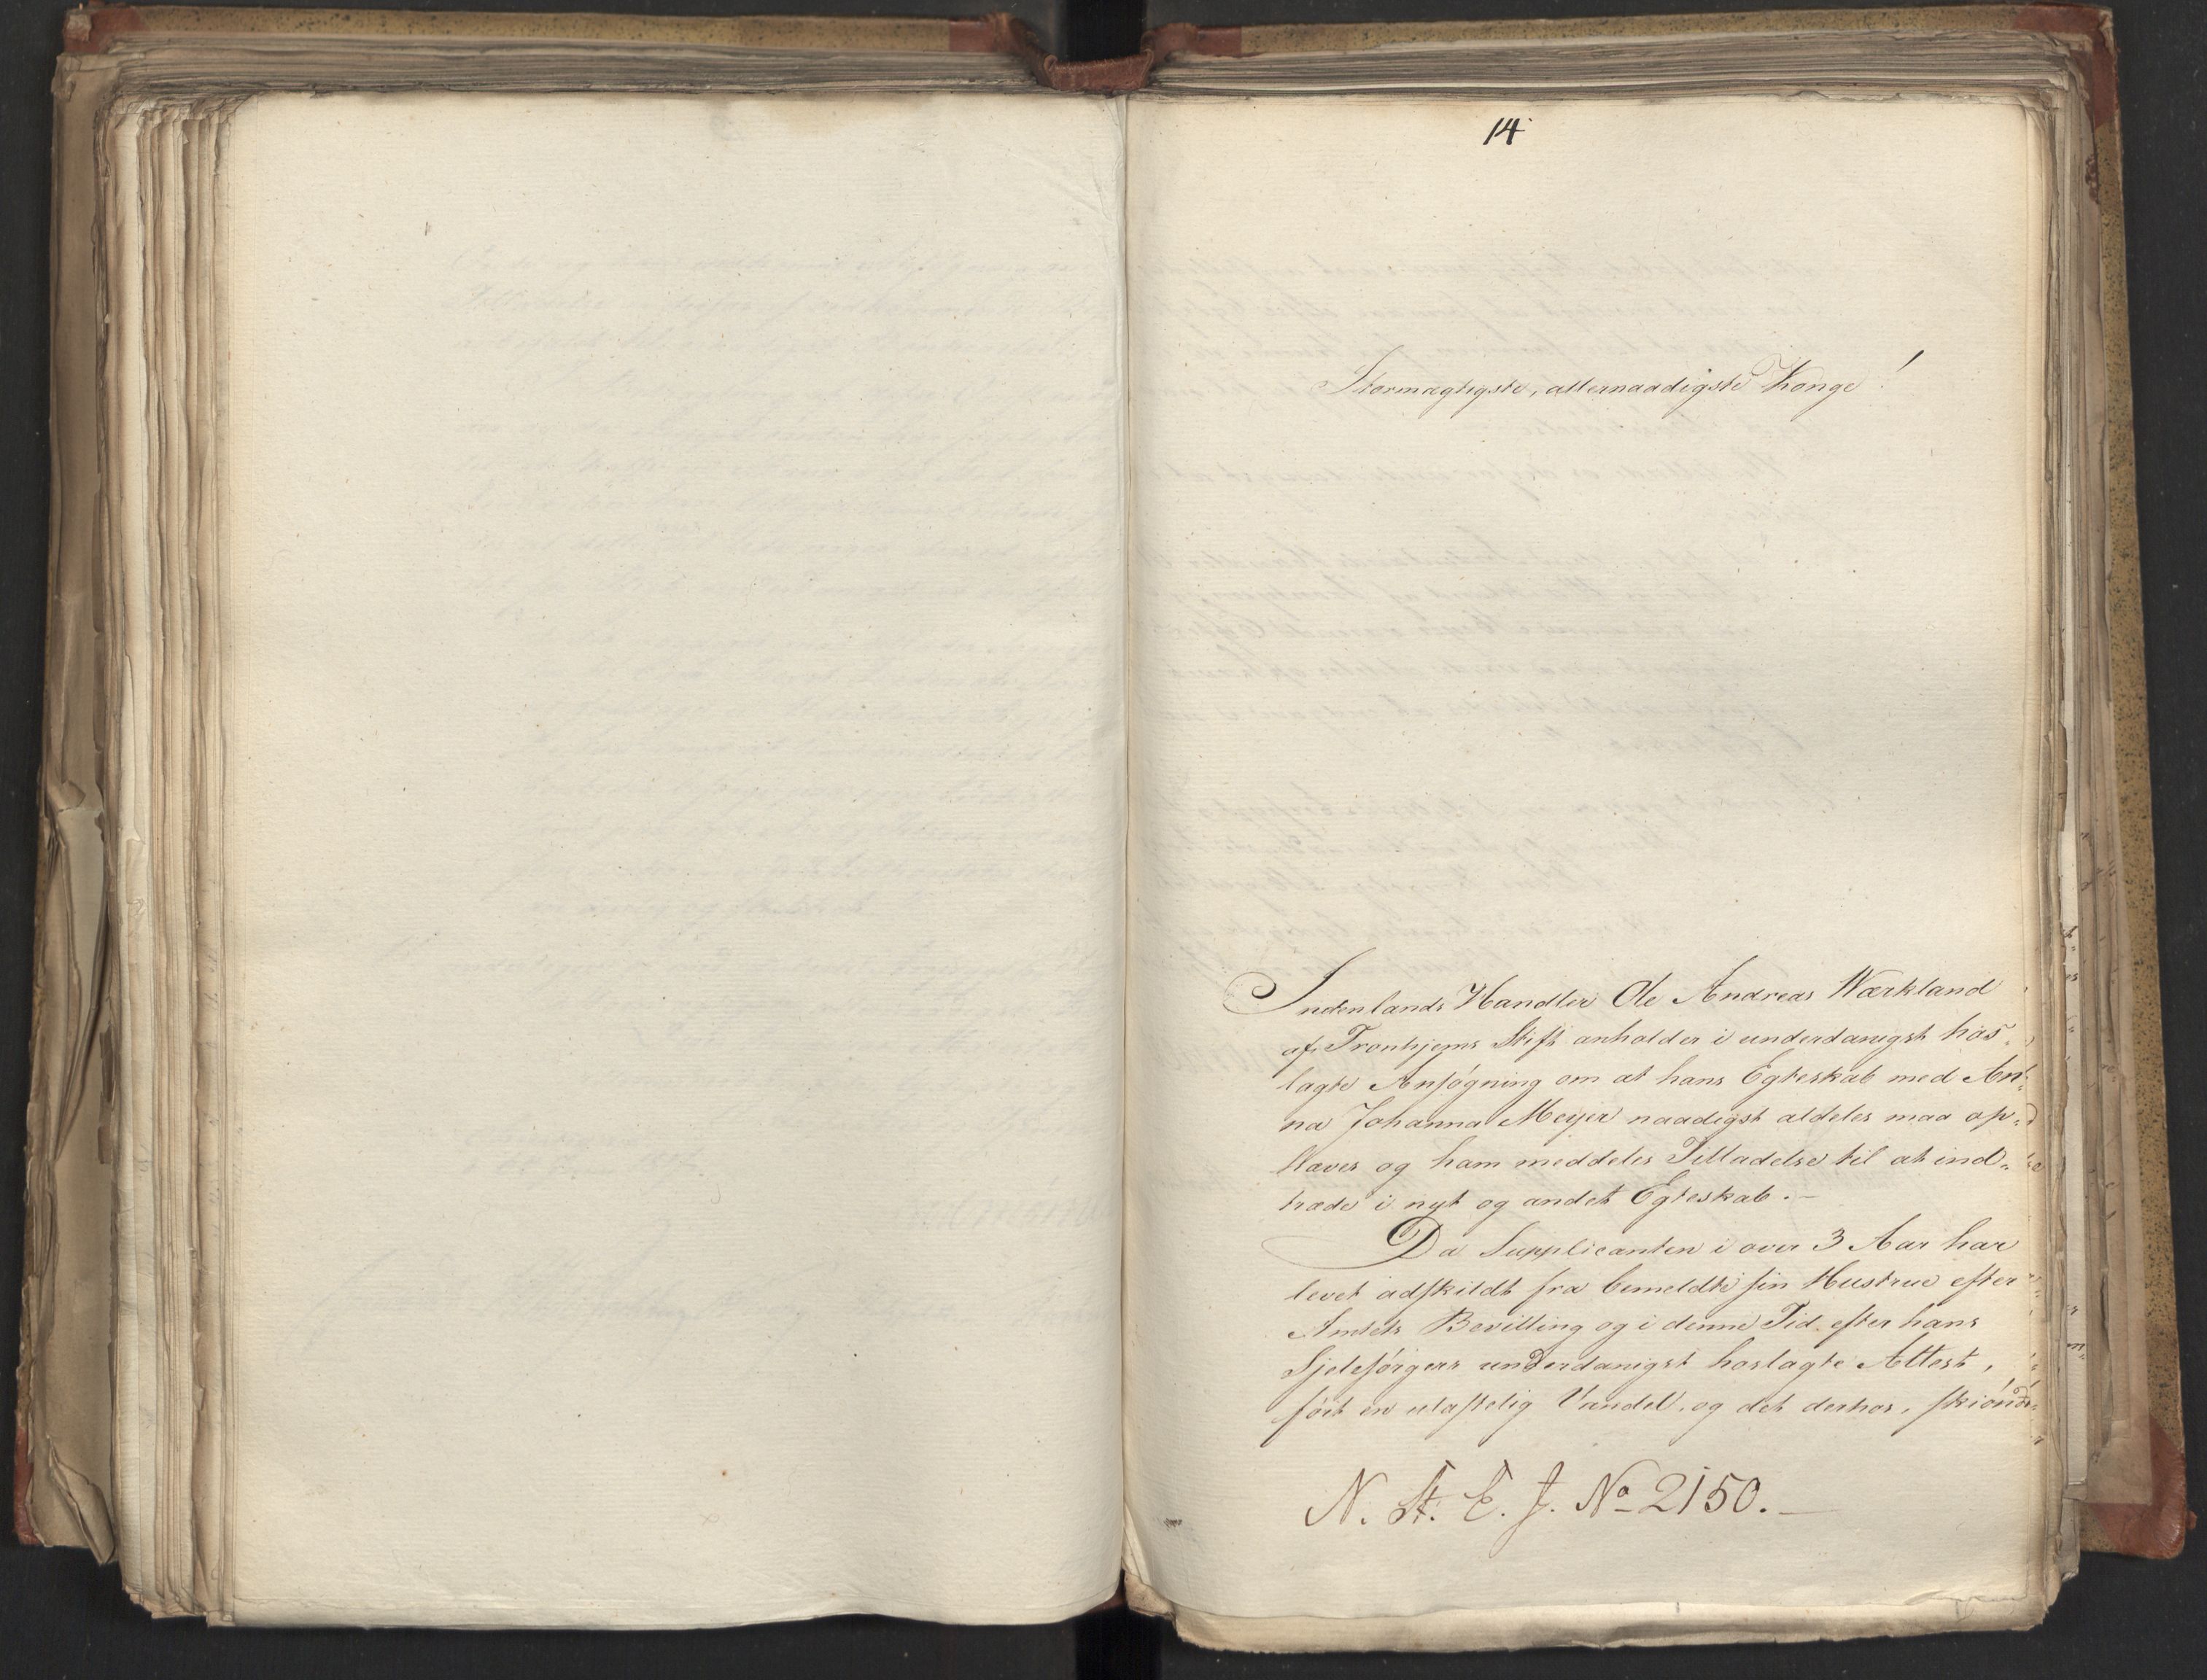 14
Stormægtigste, allernaadigste Konge!
Indenlands Handler Ole Andreas Værkland
af Tronhjems Stift anholder i underdanigst hos„
lagte Ansøgning om at hans Egteskab med An„
na Johanna Meyer naadigst aldeles maa op„
hæves og ham meddeles Tilladelse til at ind„
træde i nyt og andet Egteskab.–
Da Supplicanten i over 3 Aar har
levet adskildt fra bemeldte sin Hustrue efter
Amtets Bevilling og i denne Tid efter hans
Sjelesørgers underdanigst hoslagte Attest,
ført en ulastelig Vandel, og det derhos, skiønd„
N. St. E. J. No 2150.–